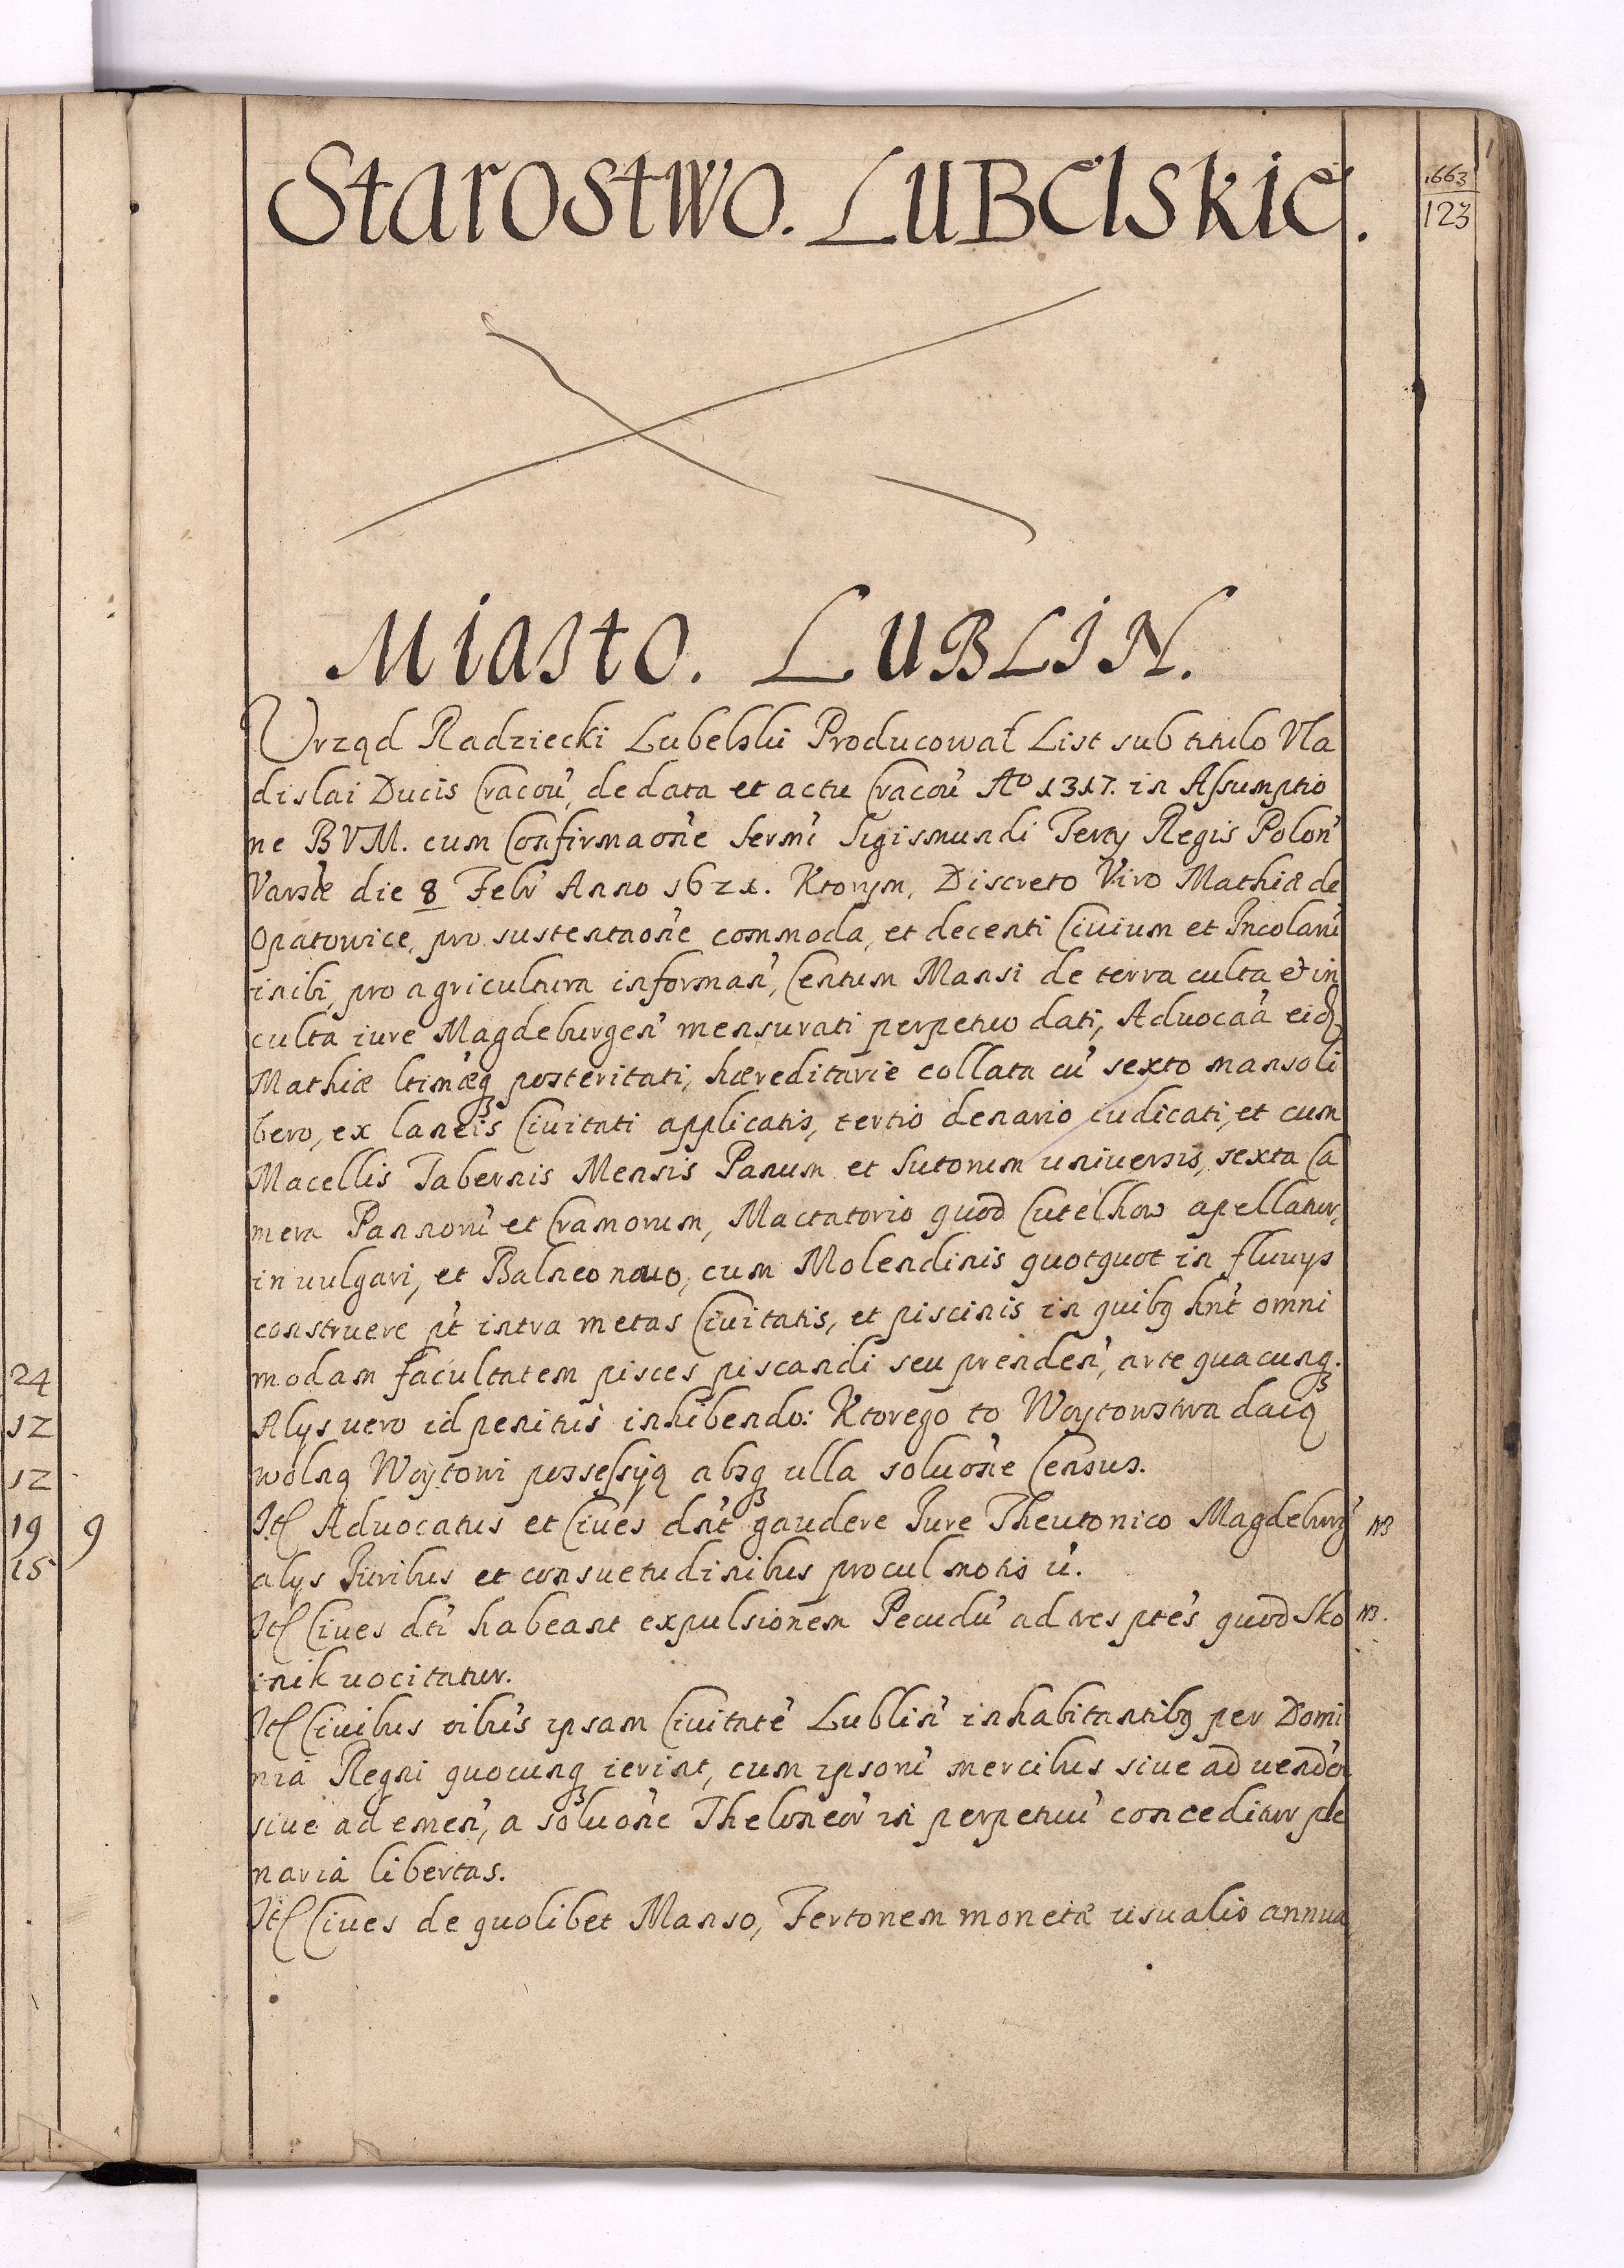 Starostwo. LUBelskie.
1663
123
Miasto. LUBLIN.
Vrząd Radziecki Lubelski Producował List sub titulo Vla
dislai Ducis Cracou', de data et actu Cracou' Aº 1317. in Assumptio
ne BVM. cum Confirmaõne Sermi Sigismundi Tertÿ Regis Polon'
Varsae die 8 Febr' Anno 1621. Ktorym, Discreto Viro Mathiæ de
Opatowice, pro sustentaõne commoda, et decenti Ciuium et Incolaru'
inibi, pro agricultura informan', Centum Mansi de terra culta et in
culta iure Magdeburgen' mensurati perpetuo dati, Aduocaa' eid
Mathiæ ltimæq3 posteritati, hæreditarie collata cu' sexto manso li
bero, ex laneis Ciuitati applicatis, tertio denario iudicati, et cum
Macellis Tabernis Mensis Panum et Sutorum uniuersis, sexta Ca
mera Pannoru' et Cramorum, Mactatorio quod Cutelhow apellatur,
in uulgari, et Balneo nouo, cum Molendinis quotquot in fluuÿs
construere pt' intra metas Ciuitatis, et piscinis in quibq hnt' omni
modam facultatem pisces piscandi seu prenden', arte quacunq3.
Alÿs uero id penitus inhibendo: Ktorego to Woytowstwa daią
wolną Woÿtowi possessÿą absq3 ulla soluõne Census.
It Aduocatus et Ciues dnt' gaudere Iure Theutonico Magdeburg' NB
alÿs Iuribus et consuetudinibus procul motis u'.
It Ciues dti' habeant expulsionem Pecudu' ad tres ptes' quod Sko NB.
tnik uocitatur.
It Ciuibus oibus' ipsam Ciuitate' Lublin' inhabitantibq per Domi
nia Regni quocunq3 ierint, cum ipsoru' mercibus siue ad uenden'
siue ad emen', a soluõne Theloneor' in perpetuu' conceditur ple
naria libertas.
It Ciues de quolibet Manso, Fertonem monetæ usualis annua
24
12
12
19 9
15